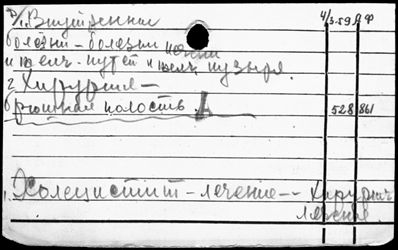 1. Внутренние 4/3.59 А Ф
болезни - болезни печени
и желч. путей и желч. пузыря.
2. Хирургия —
брюшная полость. 528 861
Холецистит - лечение -- Хирургич
лечение.